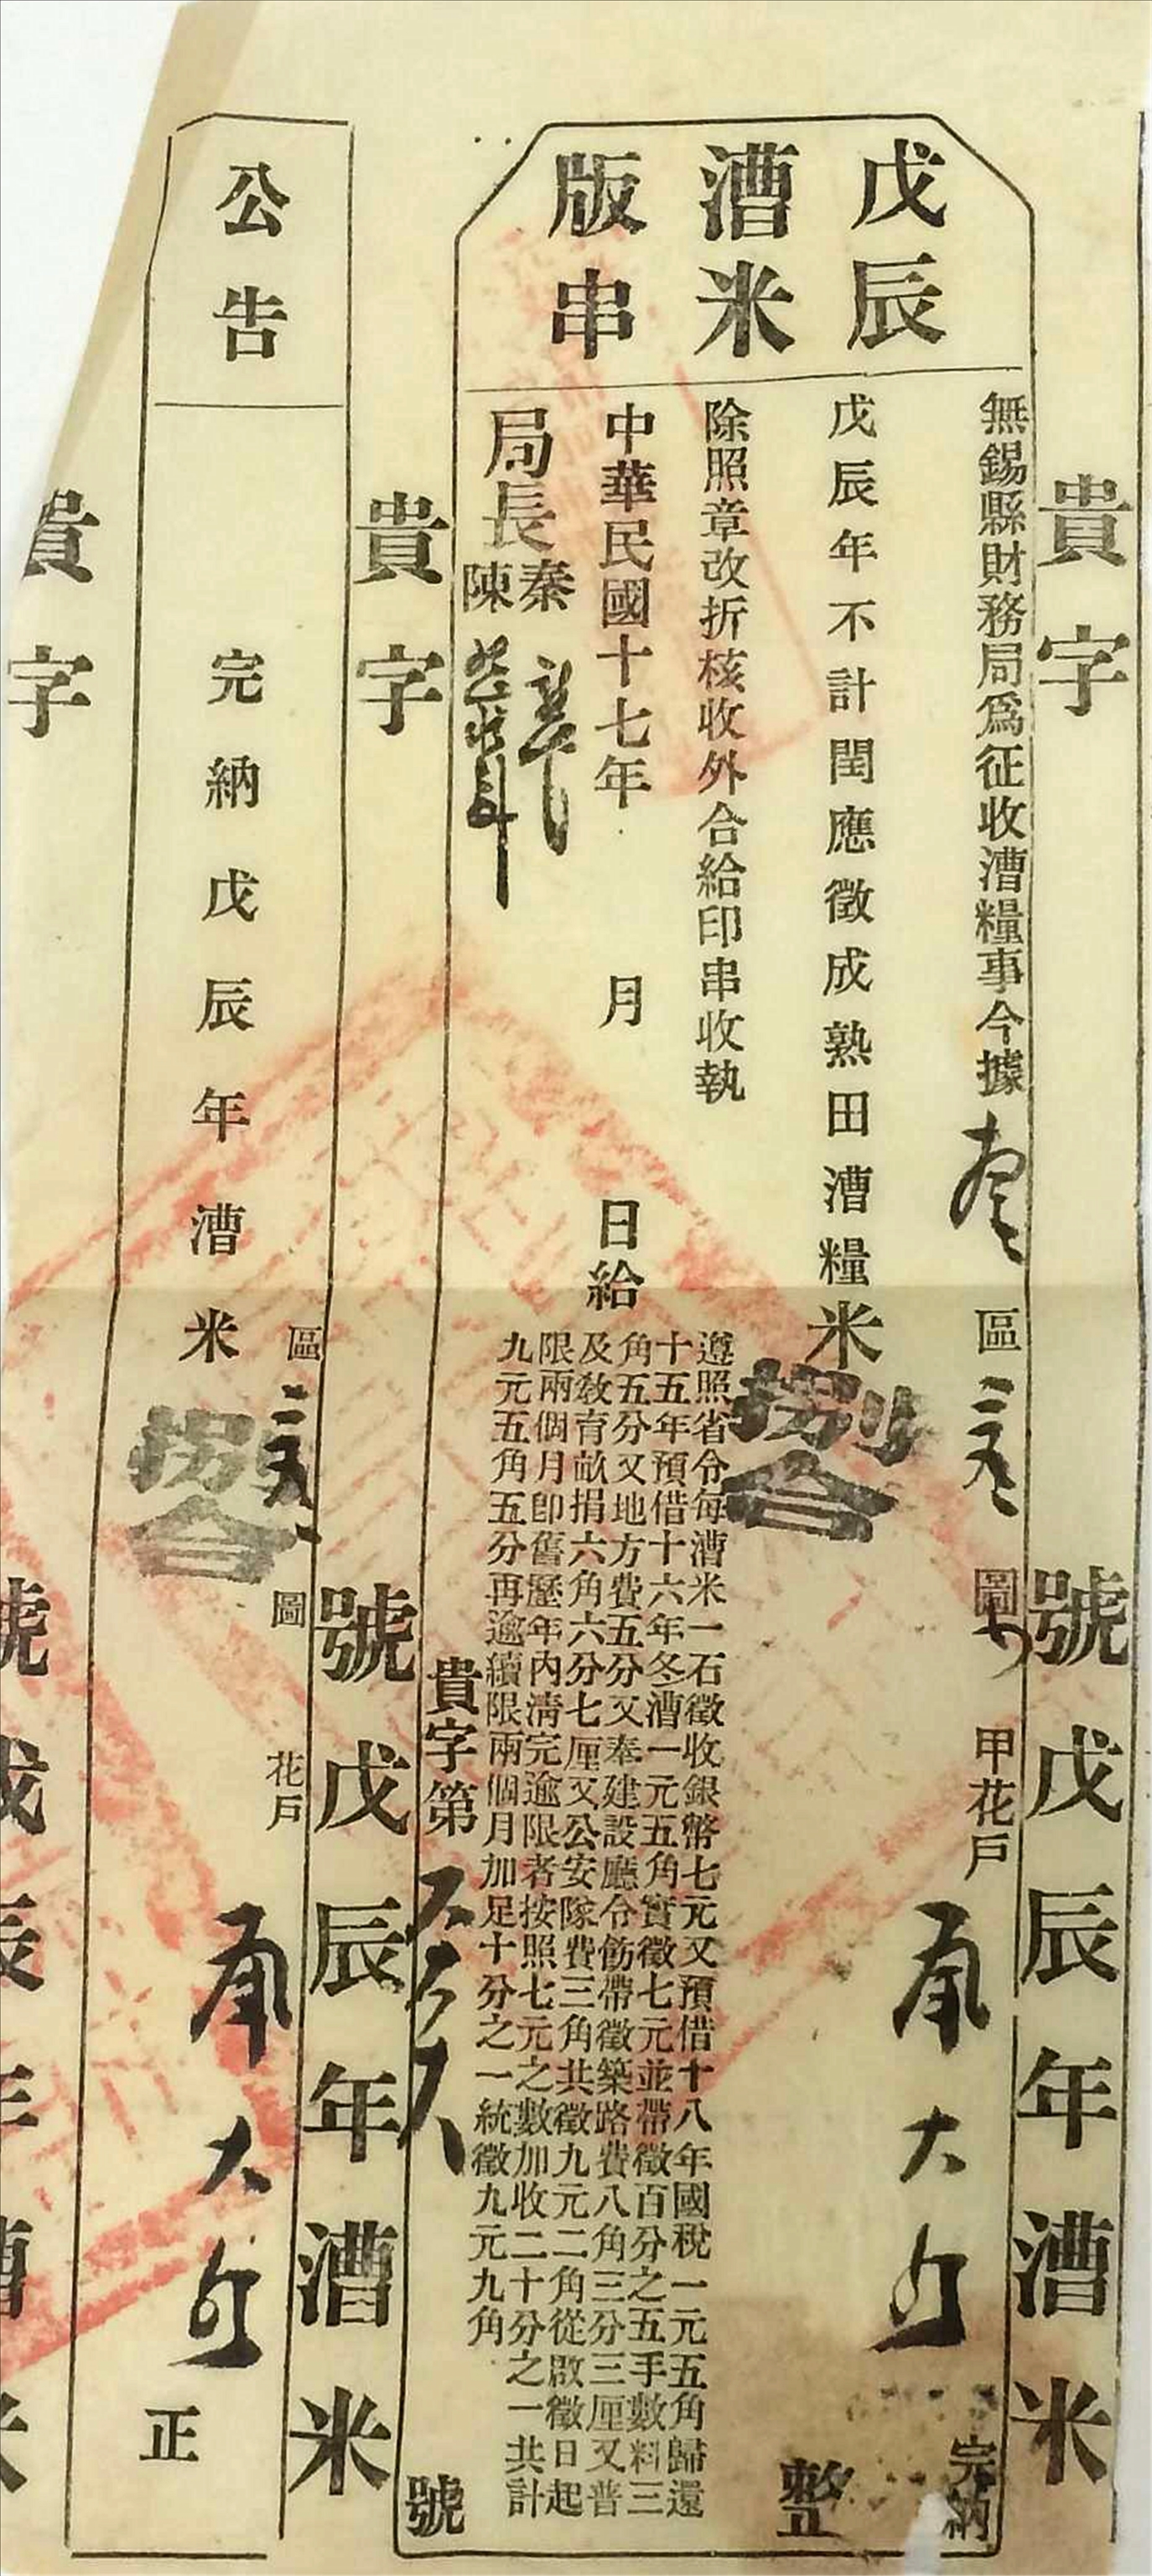 貴字
號戊辰年漕米
戊辰
漕米
版串
無錫縣財務局爲征收漕糧事今據
區
圖
甲花戶
大
完納
戊辰年不計閏應徵成熟田漕糧米捌合
整
除照章改折核收外合給印串收執
遵照省令每漕米一石徵收銀幣七元又預借十八年國稅一元五角歸還
十五年預借十六年冬漕一元五角實徵七元並帶徵百分之五手數料三
角五分又地方費五分又奉建設廳令飭帶徵築路費八角三分三厘又普
及教育畝捐六角六分七厘又公安隊費三角共徵九元二角從啟徵日起
限兩個月卽舊歷年內清完逾限者按照七元之數加收二十分之一共計
九元五角五分再逾續限兩個月加足十分之一統徵九元九角
中華民國十七年 月 日給
局長秦
陳
貴字第
號
貴字
號戊辰年漕米
公告
區
圖
花戶
大
完納戊辰年漕米捌合
正
貴字
號戊辰年漕米